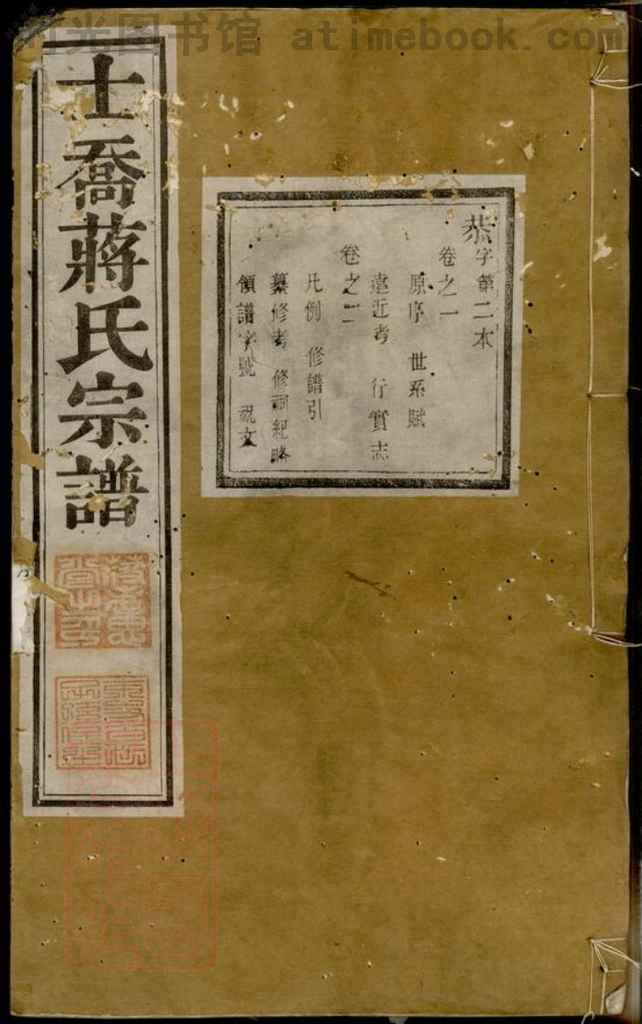 时光图书馆 atimebook.com
恭字第二本
卷之一
原序 世系賦
遠近考 行實志
卷之二
凡例 修譜引
纂修考 修祠紀略
領譜字號 祝文
士喬蔣氏宗譜